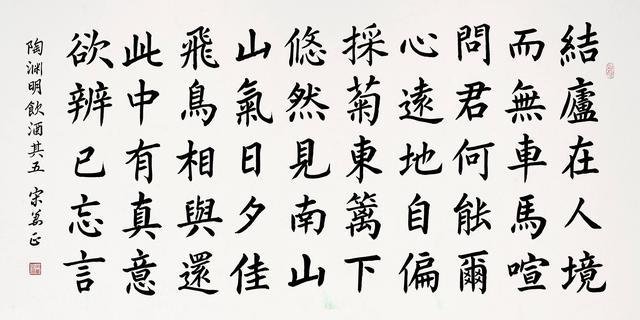 結廬在人境
而無車馬喧
問君何能爾
心遠地自偏
採菊東籬下
悠然見南山
山氣日夕佳
飛鳥相與還
此中有真意
欲辨已忘言
陶淵明飲酒其五 宋